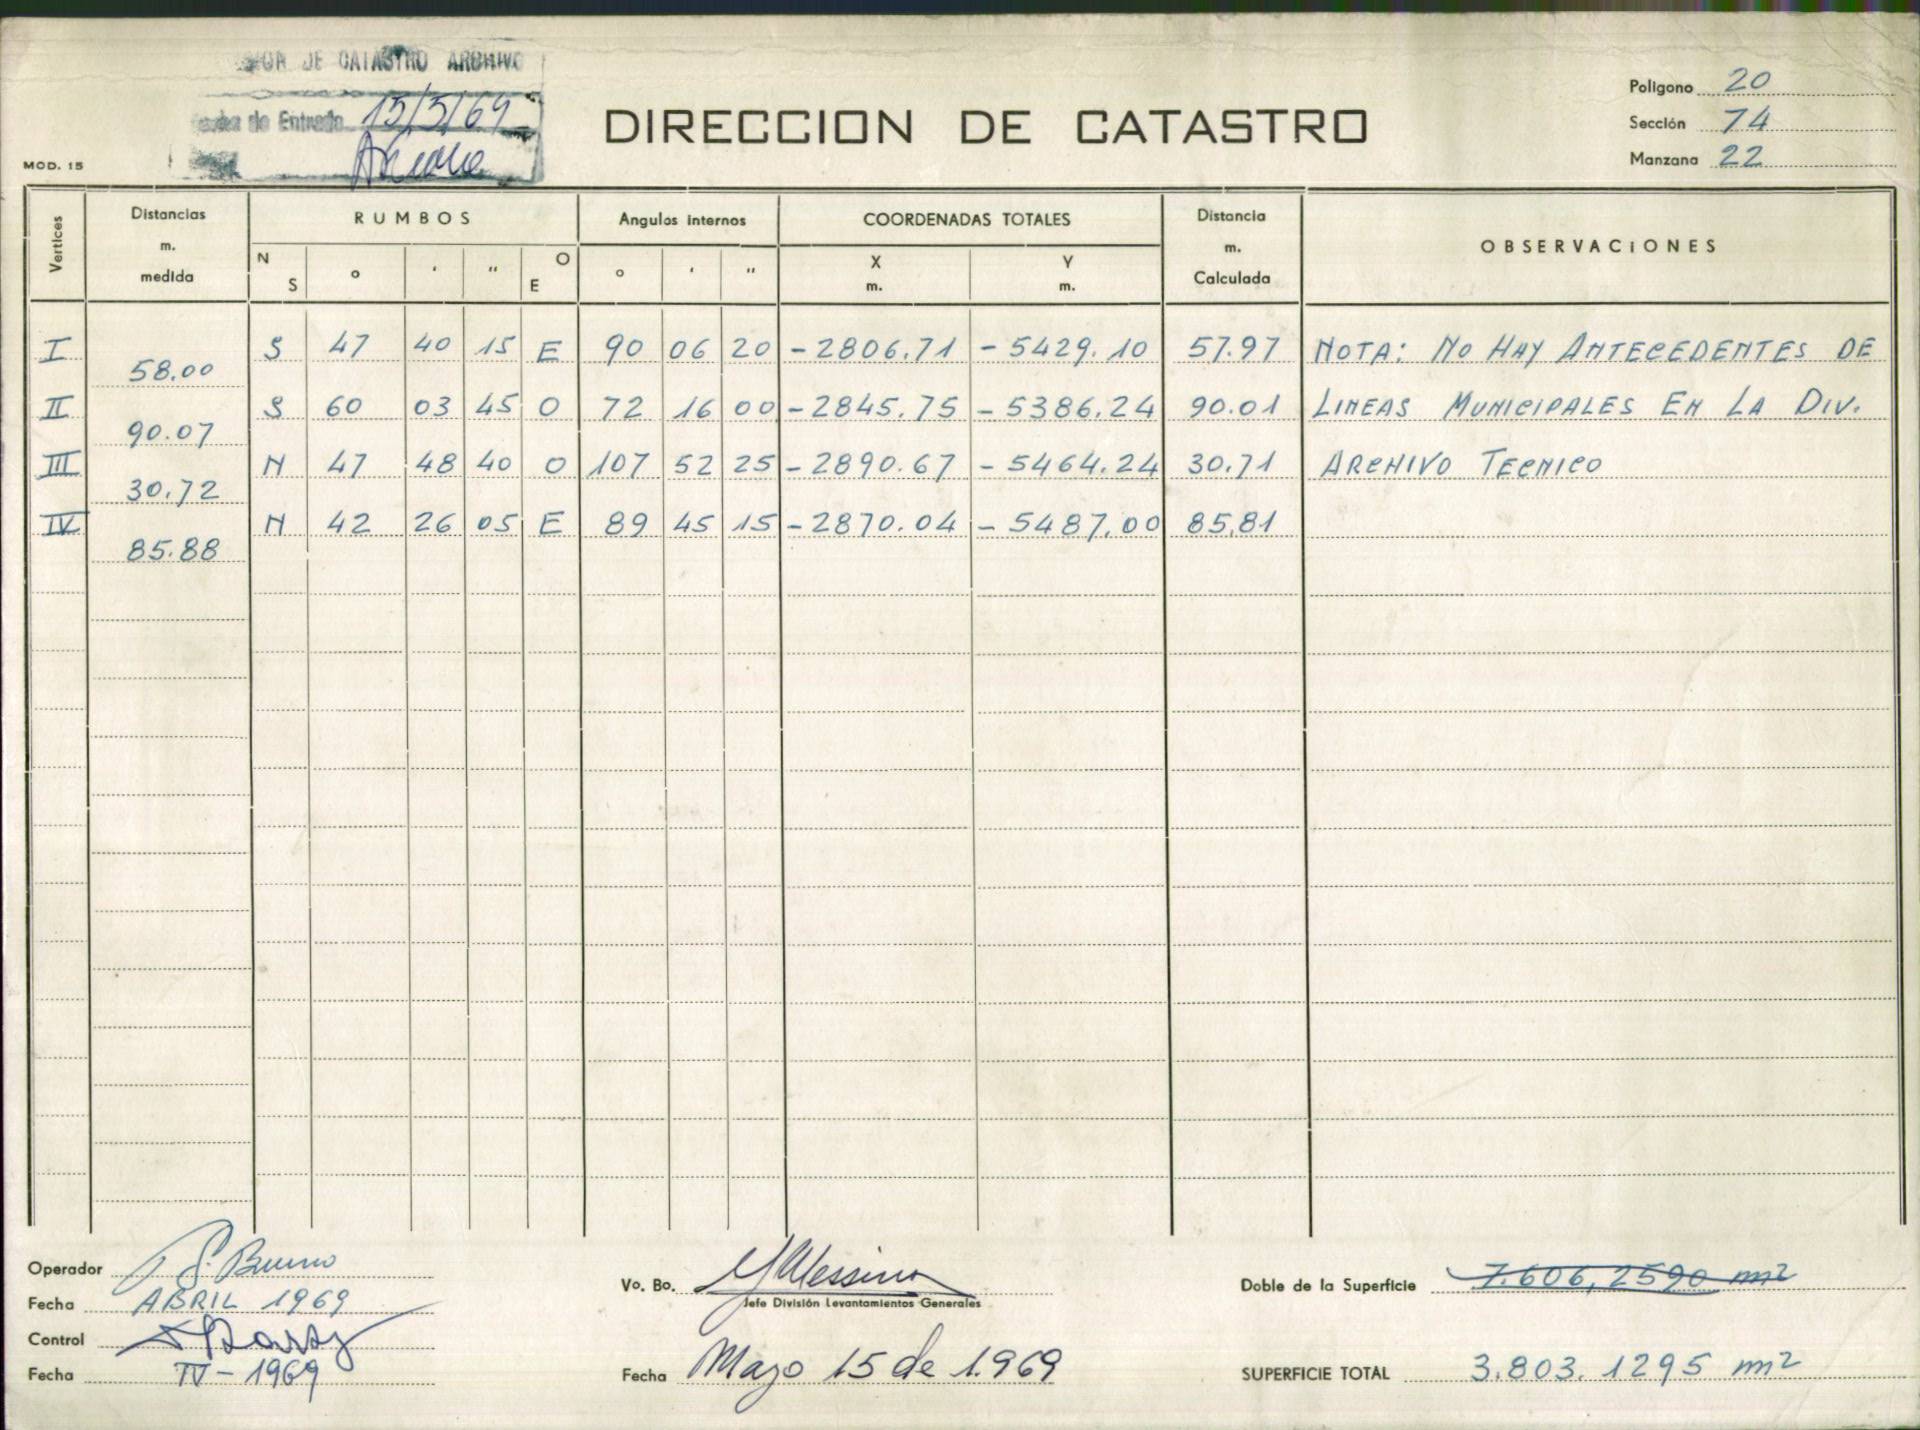 DE CATASTRO ARCHIVO
de Entrada 15/5/69
MOD. 15
DIRECCION DE CATASTRO
Poligono 20
Sección 74
Manzana 22
Vertices Distancias m. medida RUMBOS Angulos internos COORDENADAS TOTALES Distancia m. Calculada OBSERVACIONES
N S ° ' " O E ° ' " X m. Y m.
I S 47 40 15 E 90 06 20 -2806.71 -5429.10 57.97 NOTA: NO HAY ANTECEDENTES DE
58.00
II S 60 03 45 O 72 16 00 -2845.75 -5386.24 90.01 LINEAS MUNICIPALES EN LA DIV.
90.07
III N 47 48 40 O 107 52 25 -2890.67 -5464.24 30.71 ARCHIVO TECNICO
30.72
IV N 42 26 05 E 89 45 15 -2870.04 -5487.00 85.81
85.88
Operador
Fecha ABRIL 1969
Control
Fecha IV-1969
Vo. Bo. Messina
Jefe División Levantamientos Generales
Fecha Mayo 15 de 1.969
Doble de la Superficie 7.606,2590 m²
SUPERFICIE TOTAL 3.803.1295 m²